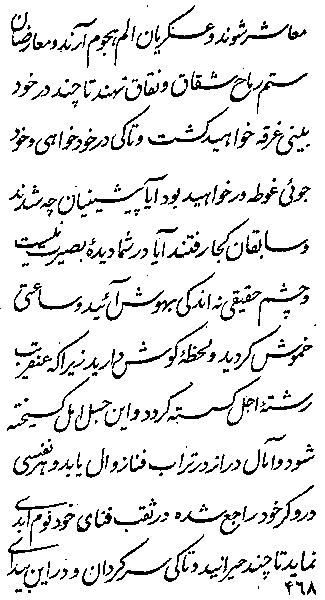 معاشر شوند و عسکریان الم هجوم آرند و معارضان
ستم رماح شقاق و نفاق نهند تا چند در خود
بینی غرقه خواهید گشت و تا کی در خود خواهی و خود
جوئی غوطه در خواهید بود آیا پیشینیان چه شدند
و سابقان کجا رفتند آیا در شما دیدهٔ بصیرت نیست
و چشم حقیقی نه اندکی بهوش آئید و ساعتی
خموش گردید و لحظهٔ گوش دارید زیرا که عنقریب
رشتهٔ اجل گسسته گردد و این حبل امل گسیخته
شود و آمال دراز در تراب فنا زوال یابد و هر نفسی
در وکر خود راجع شده در ثقب فنای خود نوم ابدی
نماید تا چند حیرانید و تا کی سرگردان و در این بیدای
۴۶۸